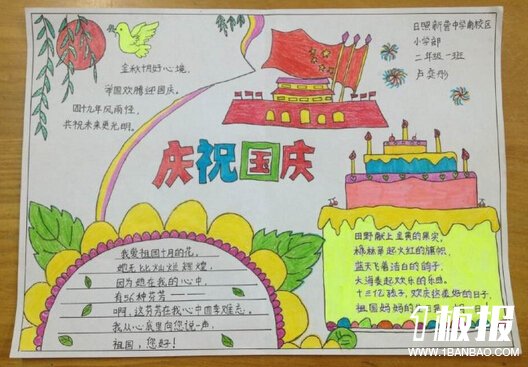 日照新营中学南校区
小学部
二年级一班
卢奕彤
金秋十月好心境,
举国欢腾迎国庆。
四十九年风雨怪,
共祝未来更光明。
庆祝国庆
我爱祖国十月的花,
她无比灿烂辉煌,
因为她在我的心中
有56种芬芳
啊,这芬芳在我心中四季难忘。
我从心底里向您说一声,
祖国,您好!
田野献上金黄的果实,
枫林举起火红的旗帜,
蓝天飞着洁白的鸽子,
大海奏起欢乐的乐曲。
十三亿孩子,欢庆这美好的日子
祖国妈妈的
板报
WWW.1BANBAO.COM